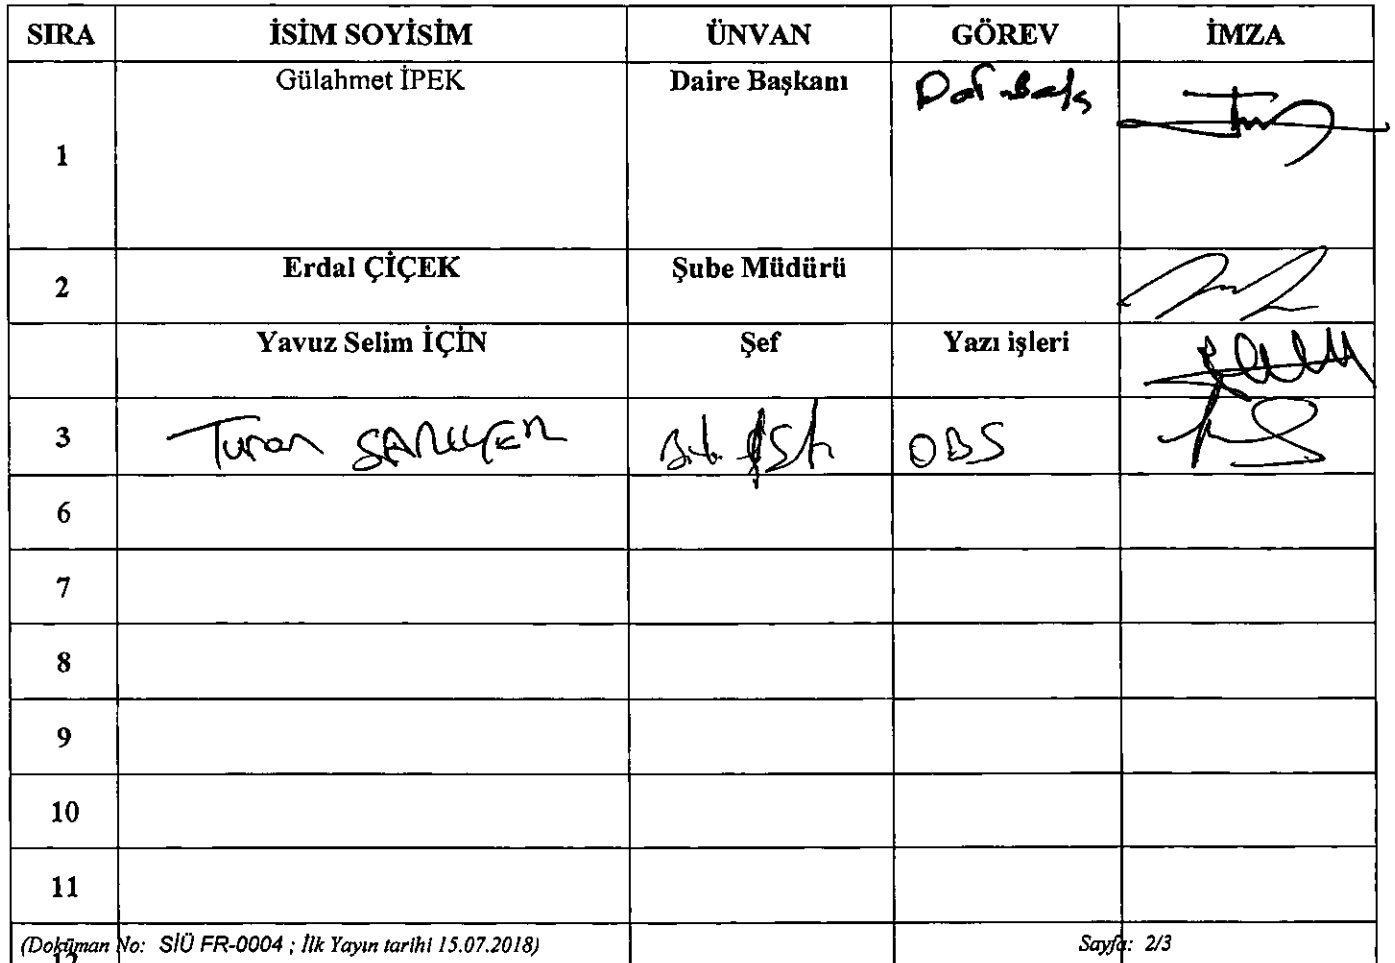 SIRA İSİM SOYİSİM ÜNVAN GÖREV İMZA
1 Gülahmet İPEK Daire Başkanı
2 Erdal ÇİÇEK Şube Müdürü
Yavuz Selim İÇİN Şef Yazı işleri
3 Turan OBS
6
7
8
9
10
11
12
(Doküman No: SİÜ FR-0004 ; İlk Yayın tarihi 15.07.2018) Sayfa: 2/3